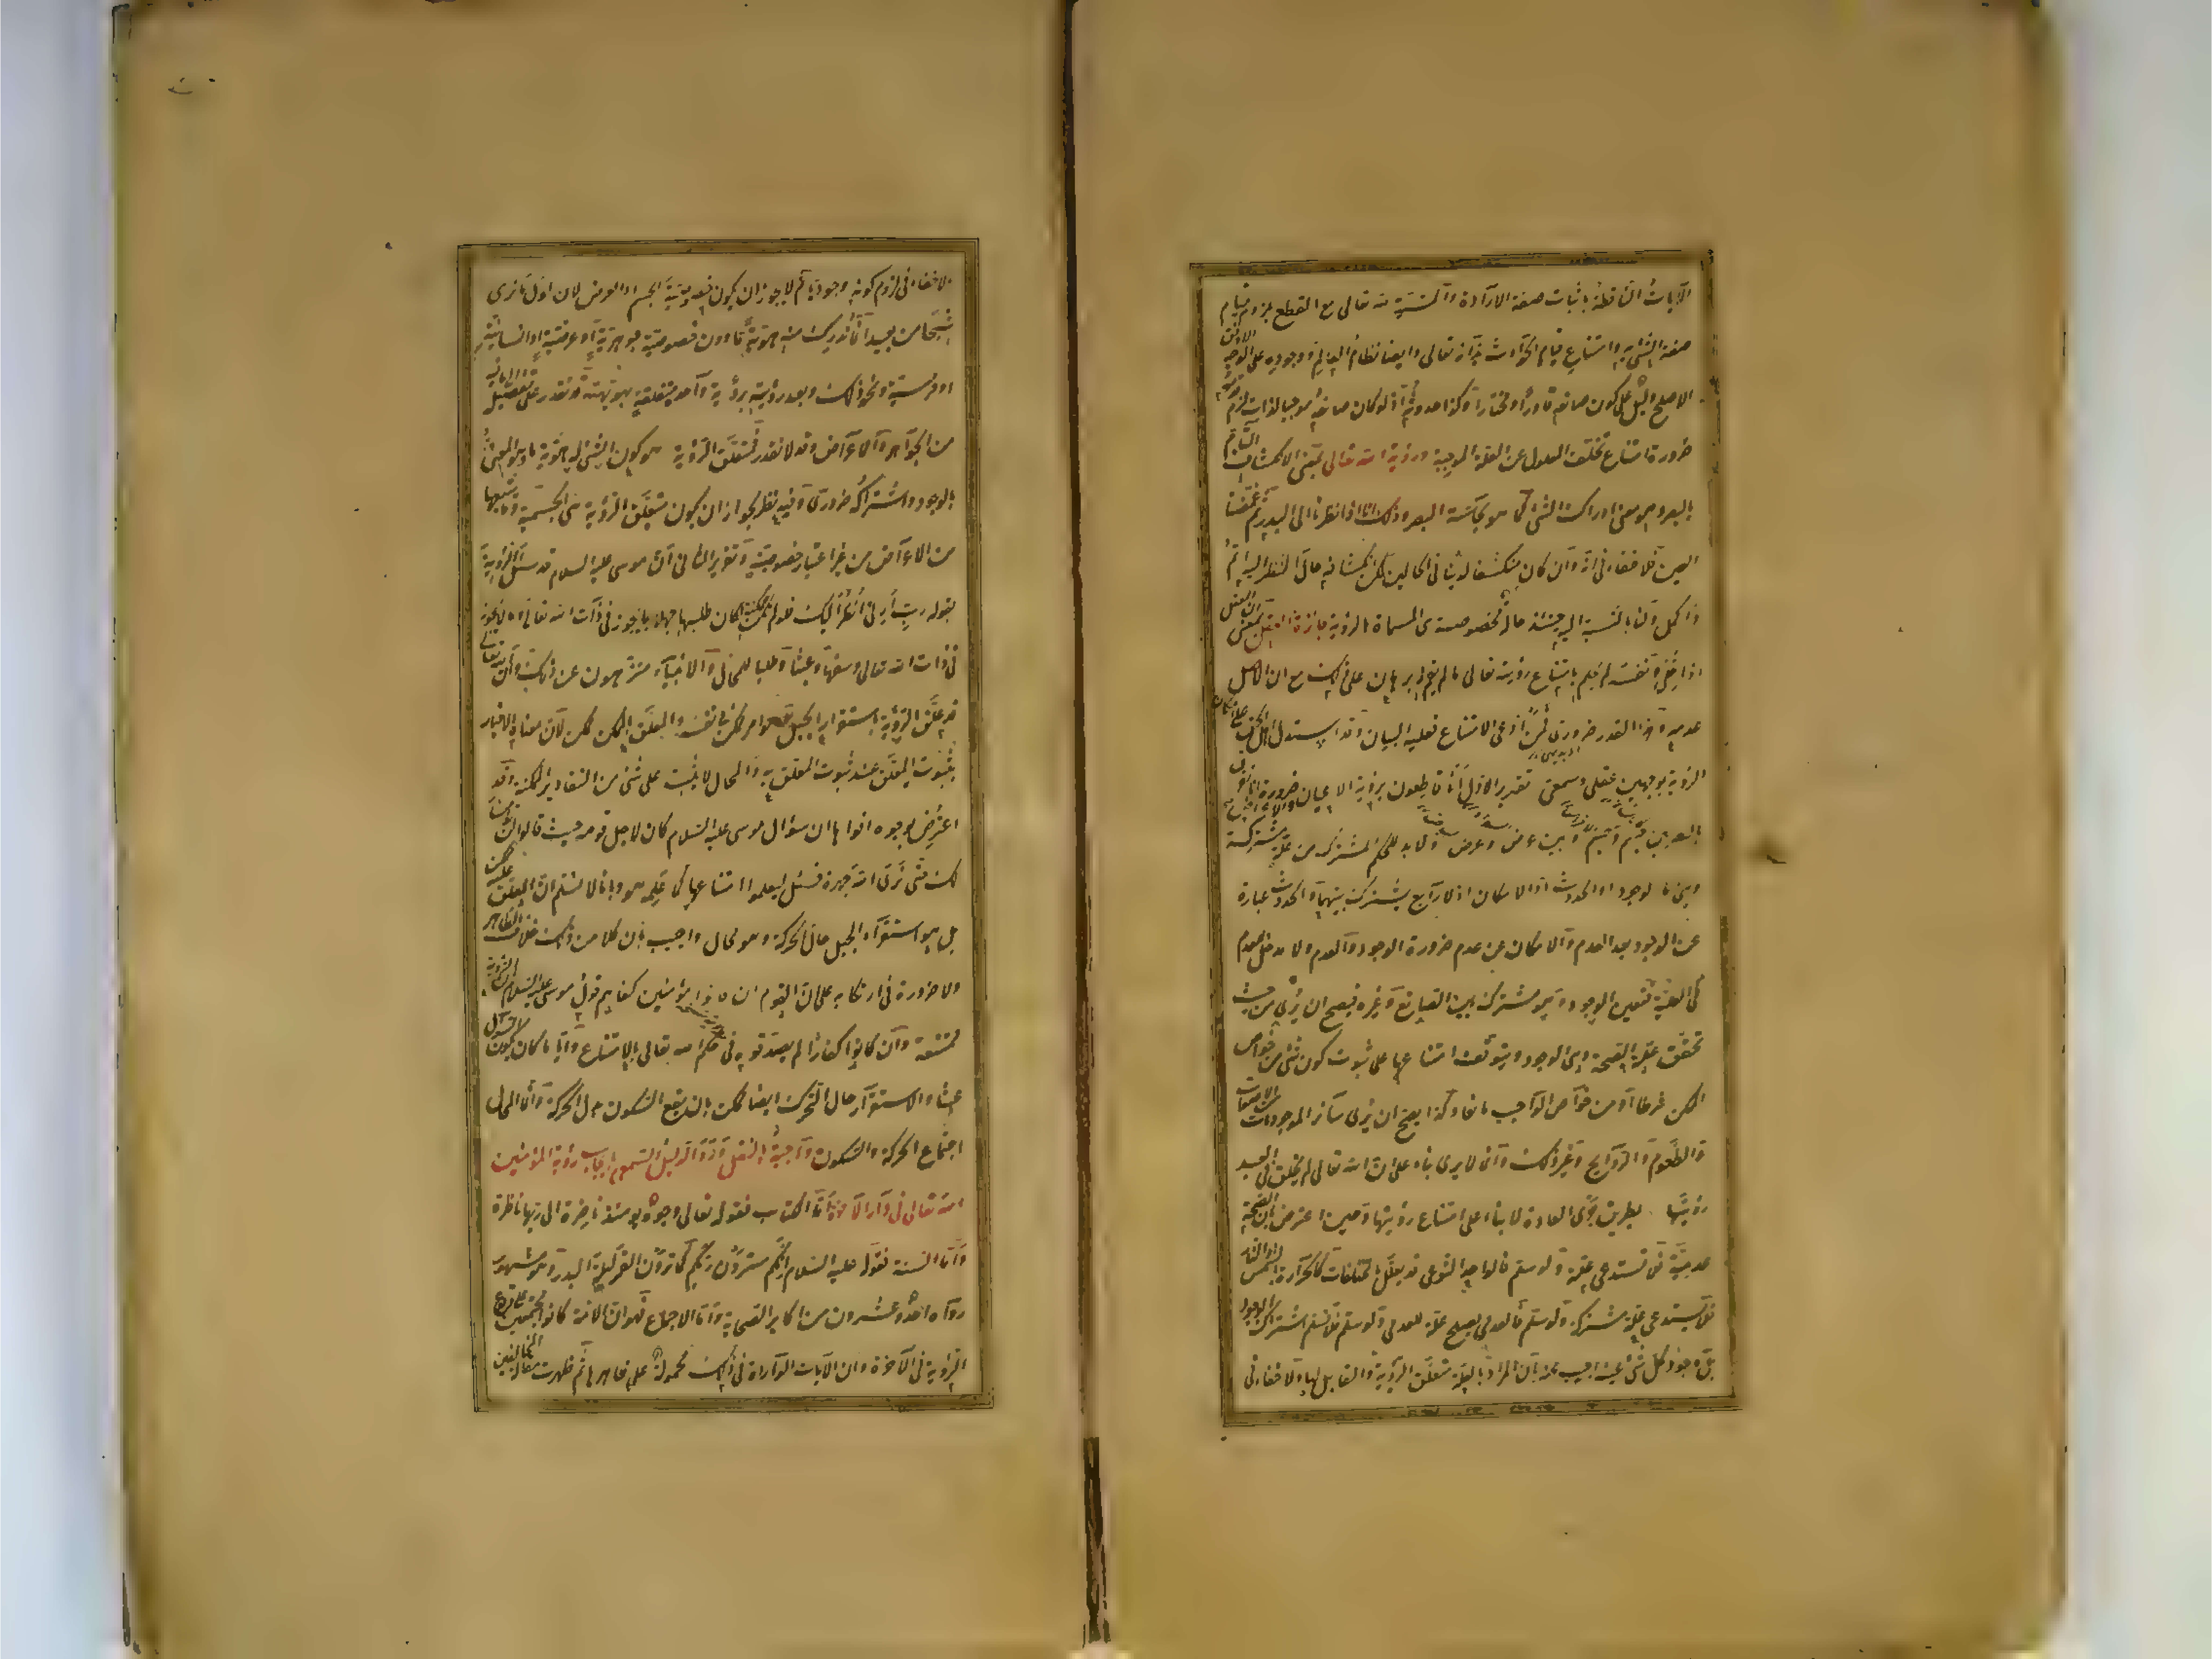 الآيات الناطقة باثبات صفة الارادة والمشية لله تعالى مع القطع بلزوم قيام
صفة الشئ به وامتناع قيام الحوادث بذاته تعالى وايضا نظام العالم ووجوده على الوجه الاوفق
الاصلح دليل على كون صانعه قادرا ومختارا وكذا حدوثه اذ لو كان صانعه موجبا لذات لزم قدمه
ضرورة امتناع تخلف المعلول عن العلة الموجبة ورؤية الله تعالى بمعنى الانكشاف التام
بالبصر وهو معنى ادراك الشئ كما هو بحاسة البصر وذلك انا اذا نظرنا الى البدر ثم غمضنا
العين فلا خفاء فى انه وان كان منكشفا لدينا فى الحالين لكن انكشافه حال النظر اليه اتم
واكمل ولنا بالنسبة اليه حينئذ حالة مخصوصة هى المسماة بالرؤية جائزة فى العقل بمعنى ان العقل
اذا خلى ونفسه لم يحكم بامتناع رؤيته تعالى ما لم يقم له برهان على ذلك مع ان الاصل
عدمه وهذا القدر ضرورى فمن ادعى الامتناع فعليه البيان وقد استدل اهل الحق على امكان
الرؤية بوجهين عقلى وسمعى تقرير الاول انا قاطعون برؤية الاعيان والاعراض ضرورة انا نفرق
بالبصر بين جسم وجسم وبين عرض وعرض ولا بد للحكم المشترك من علة مشتركة
وهى اما الوجود او الحدوث او الامكان اذ لا رابع يشترك بينهما والحدوث عبارة
عن الوجود بعد العدم والامكان عن عدم ضرورة الوجود والعدم ولا مدخل للعدم
فى العلية فتعين الوجود وهو مشترك بين الصانع وغيره فيصح ان يرى من حيث
تحقق علة الصحة وهى الوجود ويتوقف امتناعها على ثبوت كون شئ من خواص
الممكن شرطا او من خواص الواجب مانعا وكذا يصح ان يرى سائر الموجودات من الاصوات
والطعوم والروايح وغير ذلك وانما لا يرى بناء على ان الله تعالى لم يخلق فى العبد
رؤيتها بطريق جرى العادة لا بناء على امتناع رؤيتها وحين اعترض بان الصحة
عدمية فلا تستدعى علة ولو سلم فالواحد النوعى قد يعلل بالمختلفات كالحرارة بالشمس والنار
فلا يستدعى علة مشتركة ولو سلم فالعدمى يصلح علة للعدمى ولو سلم فلا نسلم اشتراك الوجود
بل وجود كل شئ عينه اجيب عنه بان المراد بالعلة متعلق الرؤية والقابل لها ولا خفاء فى
لا خفاء فى لزوم كونه وجوديا ثم لا يجوز ان يكون خصوصية الجسم او العرض لان اول ما نرى
شبحا من بعيد انما ندرك منه هوية ما دون خصوصية جوهرية او عرضية او انسانية
او فرسية ونحو ذلك وبعد رؤيته برؤية واحدة متعلقة بهويته قد نقدر على تفصيله الى ما فيه
من الجواهر والاعراض وقد لا نقدر فمتعلق الرؤية هو كون الشئ له هوية ما وهو المعنى
بالوجود واشتراكه ضرورى وفيه نظر لجواز ان يكون متعلق الرؤية هى الجسمية وما يتبعها
من الاعراض من غير اعتبار خصوصية وتقرير الثانى ان موسى عليه السلام قد سئل الرؤية
بقوله رب ارنى انظر اليك فلو لم تكن ممكنة لكان طلبها جهلا بما يجوز فى ذات الله تعالى وما لا يجوز
فى ذات الله تعالى وسفها وعبثا وطلبا للمحال والانبياء منزهون عن ذلك وان الله تعالى
قد علق الرؤية باستقرار الجبل وهو امر ممكن فى نفسه والمعلق بالممكن ممكن لان معناه الاخبار
بثبوت المعلق عند ثبوت المعلق به والمحال لا يثبت على شئ من التقادير الممكنة وقد
اعترض بوجوه اقواها ان سؤال موسى عليه السلام كان لاجل قومه حيث قالوا لن نؤمن
لك حتى نرى الله جهرة فسئل ليعلموا امتناعها كما علمه هو وبانا لا نسلم ان المعلق عليه ممكن
بل هو استقرار الجبل حال الحركة وهو محال واجيب بان كلا من ذلك خلاف الظاهر
ولا ضرورة فى ارتكابه على ان القوم ان كانوا مؤمنين كفاهم قول موسى عليه السلام ان الرؤية
ممتنعة وان كانوا كفارا لم يصدقوه فى حكم الله تعالى بالامتناع وايا ما كان يكون السؤال
عبثا والاستقرار حال التحرك ايضا ممكن بان يقع السكون بدل الحركة وانما المحال
اجتماع الحركة والسكون واجبة بالنقل ورد الدليل السمعى بايجاب رؤية المؤمنين
الله تعالى فى دار الآخرة اما الكتاب فقوله تعالى وجوه يومئذ ناضرة الى ربها ناظرة
واما السنة فقوله عليه السلام انكم سترون ربكم كما ترون القمر ليلة البدر وهو مشهور
رواه احد وعشرون من اكابر الصحابة واما الاجماع فهو ان الامة كانوا مجتمعين على وقوع
الرؤية فى الآخرة وان الآيات الواردة فى ذلك محمولة على ظواهرها ثم ظهرت مقالة المخالفين